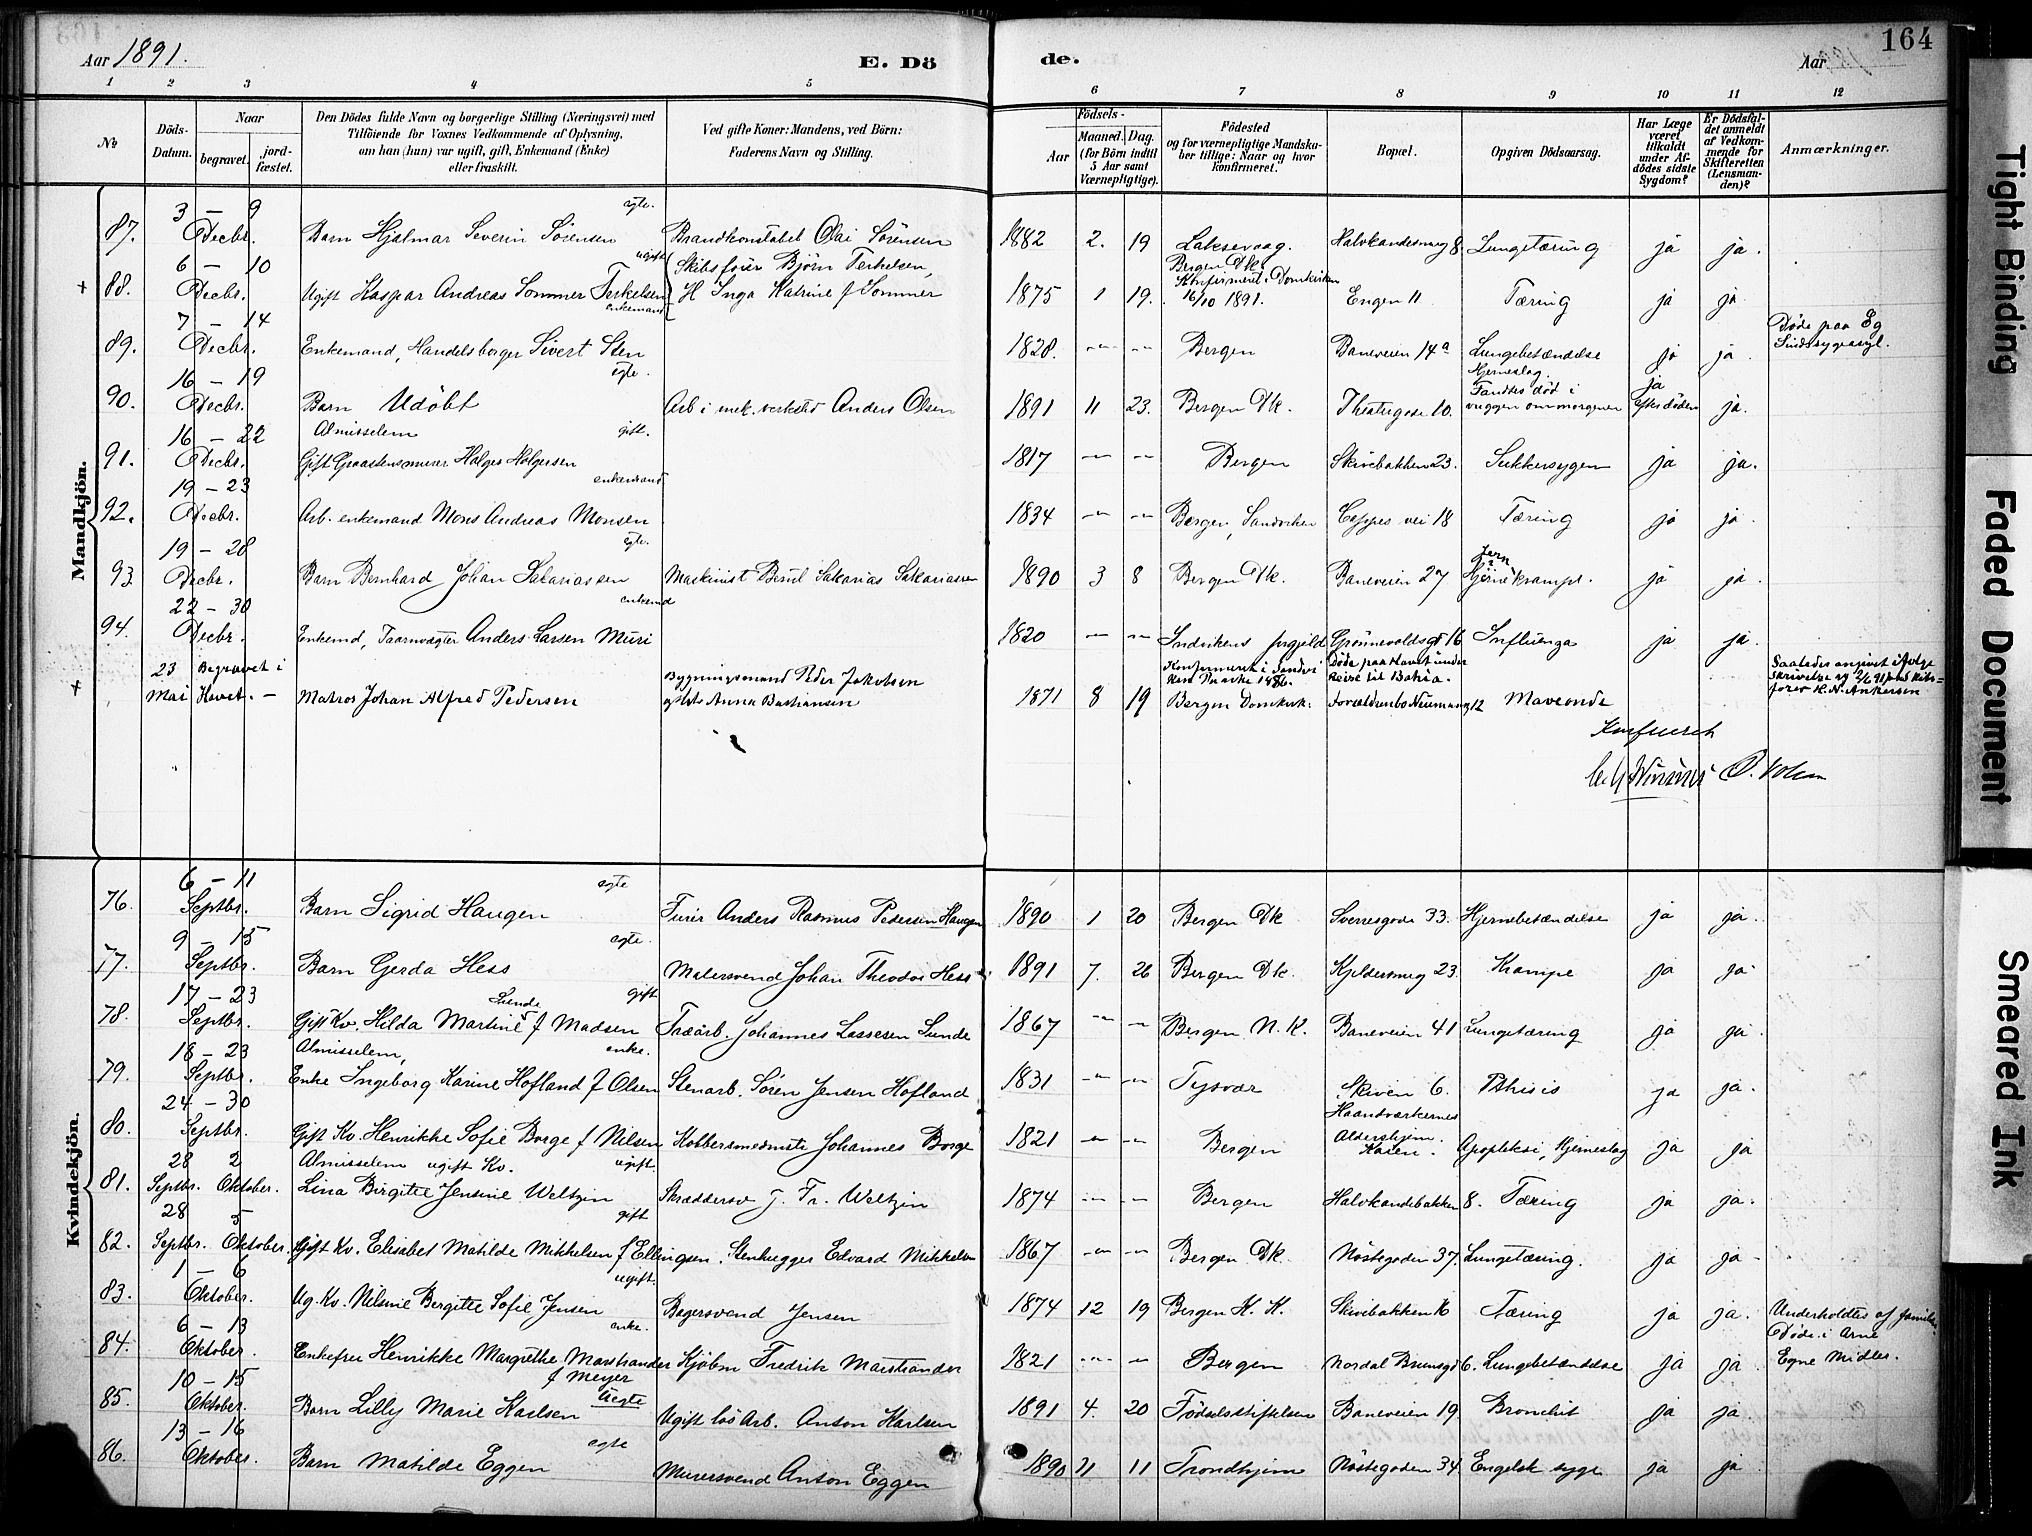 Aar 1891.
E. Dö
de.
Aar
164
1 2 3 4 5 6 7 8 9 10 11 12
№
Döds-Datum.
Naar
begravet.
jord-fæstet.
Den Dödes fulde Navn og borgerlige Stilling (Næringsvei) med
Tilföiende for Voxnes Vedkommende af Oplysning,
om han (hun) var ugift, gift, Enkemand (Enke)
eller fraskilt.
Ved gifte Koner: Mandens, ved Börn:
Faderens Navn og Stilling.
Födsels-
Aar
Maaned.
Dag.
(for Börn indtil
5 Aar samt
Værnepligtige).
Födested
og for værnepligtige Mandska-
ber tillige: Naar og hvor
konfirmeret.
Bopæl.
Opgiven Dödsaarsag.
Har Læge
været
tilkaldt
under Af-
dödes sidste
Sygdom?
Er Dödsfal-
det anmeldt
af Vedkom-
mende for
Skifteretten
(Lensman-
den)?
Anmærkninger.
Mandkjön.
87. 3 – 9 Decbr. Barn Hjalmar Severin Sörensen egte. Brandkonstabel Olai Sörensen 1882 2. 19 Laksevaag. 8. Lungetæring ja ja.
+ 88. 6 – 10 Decbr. Ugift Kaspar Andreas Sommer Terkelsen ugift Skibsförer Björn Terkelsen, H Inga Katrine f Sommer 1875 1 19. Bergen Dk. Konfirmeret i Domkirken 16/10 1891. Engen 11 Tæring ja ja
89. 7 – 14 Decbr. Enkemand, Handelsborger Sivert Sten enkemand 1828. – – Bergen Baneveien 14a Lungebetændelse ja ja. Döde paa Eg Sindssygeasyl.
90. 16 – 19 Decbr. Barn Udöbt egte. Arb i mek. verksted Anders Olsen 1891 11 23. Bergen Dk. Theatergade 10. Hjerneslag. Fandtes död i vuggen om morgenen ja efter döden ja.
91. 16 – 22 Decbr. Almisselem Gift Holger Holgersen gift. 1817 – – Bergen Skivebakken 23. Sukkersygen ja ja.
92. 19 – 23 Decbr. Arb. enkemand Mons Andreas Monsen enkemand 1834 – – Bergen, Sandviken vei 18 Tæring ja ja
93. 19 – 28 Decbr. Barn Bernhard Johan Sakariassen egte. Maskinist Berul Sakarias Sakariassen 1890 3 8 Bergen Dk. Baneveien 27 ja ja.
94. 22 – 30 Decbr. Enkemd, Taarnvægter Anders Larsen Muri enkemd 1820 – – Indvikens prgjeld 16 Influenza ja ja.
+ 23 Mai Begravet i Havet. – Matros Johan Alfred Pedersen Bygningsmand Peder Jakobsen Anna Bastiansen 1871 8 19 Bergen Domkirk: Döde paa Havet under Reise til Bahia. 12 Maveonde Saaledes angivet ifølge skrivelse
Konfereret
Kvindekjön.
76. 6 – 11 Septbr. Barn Sigrid Haugen egte Anders Rasmus Pedersen Haugen 1890 1 20 Bergen Dk Sverresgade 33. Hjernebetændelse ja ja.
77. 9 – 15 Septbr. Barn Gerda Hess egte. Malersvend Johan Theodor Hess 1891 7. 26 Bergen Dk. 23. Krampe ja ja
78. 17 – 23 Septbr. Gift Kv. Hilda Martine Lunde f Madsen gift Træarb. Johannes Lassesen Lunde 1867 – – Bergen N. K. Baneveien 41 Lungetæring ja ja.
79. 18 – 23 Septbr. Almisselem, Enke Ingeborg Karine Hofland f Olsen enke. Stenarb. Sören Jensen Hofland 1831 – – Tysvær Skiven 6. Pthisis ja ja.
80. 24 – 30 Septbr. Gift Kv. Henrikke Sofie Borge f Nilsen Kobbersmedmester Johannes Borge 1821 – – Bergen Haandværkernes Aldershjem. Apopleksi, Hjerneslag ja ja
81. 28 Septbr. 2 Oktober. Almisselem ugift Kv. Lina Birgitte Jensine Weltzin ugift Skræddersv J. Fr. Weltzin 1874 – – Bergen Halvkandebakken 8. Tæring ja ja.
82. 28 Septbr. 5 Oktober. Gift Kv. Elisabet Matilde Mikkelsen f Ellingsen gift Stenhugger Edvard Mikkelsen 1867 – – Bergen Dk Nöstegaden 37. Lungetæring. ja ja
83. 1 – 6 Oktober. Ug. Kv. Nilsine Bergitte Sofie Jensen ugift. Bagersvend Jensen 1874 12 19 Bergen K. K. Skivebakken 16 Tæring ja ja. Underholdtes af familien. Döde i Arne
84. 6 – 13 Oktober. Enkefru Henrikke Margrethe Marstrander f Meyer enke. Kjöbm Fredrik Marstrander 1821 – – Bergen Nordal Brunsgd 6. Lungebetændelse ja ja Egne Midler.
85. 10 – 15 Oktober. Barn Lilly Marie Karlsen Uegte Ugift lös Arb. Anton Karlsen 1891 4. 20 Födselsstiftelsen Baneveien 19. Bronchit ja ja
86. 13 – 16 Oktober. Barn Matilde Eggen egte Murersvend Anton Eggen 1890 11 11 Trondhjem Nöstegaden 34 Engelsk syge ja ja
Tight Binding
Faded Document
Smeared Ink